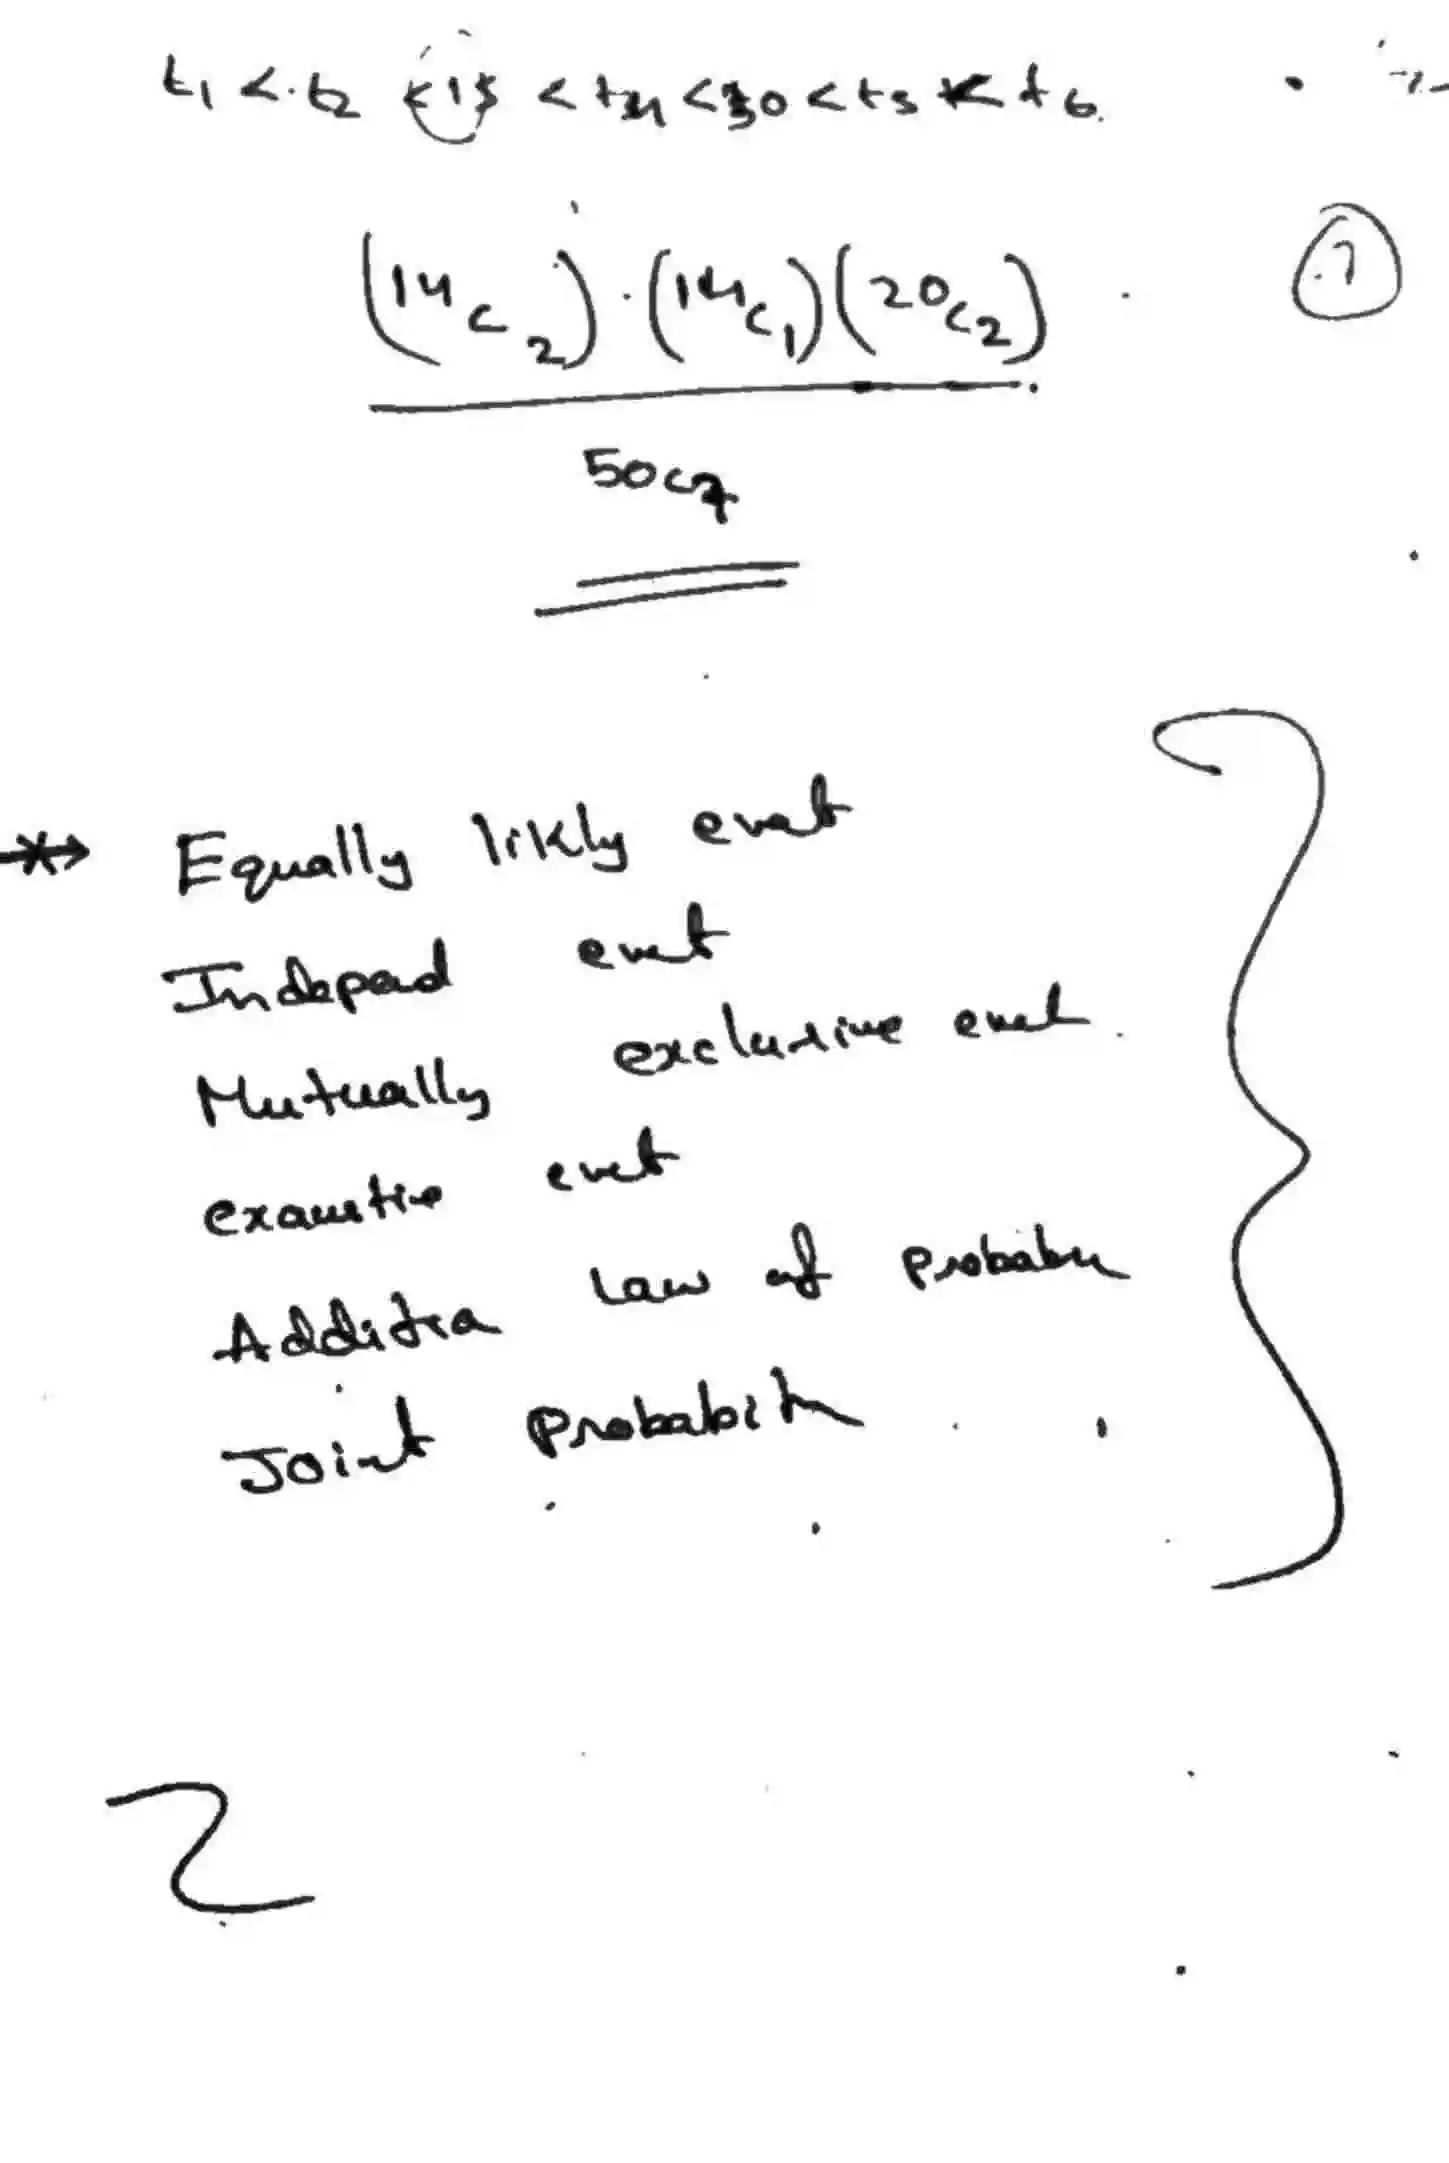 t1 < t2 < 15 < t4 < 30 < t5 < t6.
(14c2) . (14c1) (20c2)
50c7
Equally likly evet
Indeped evet
Mutually exclusive evet
exaustie evet
Additia Law of Probabu
Joint Probabity